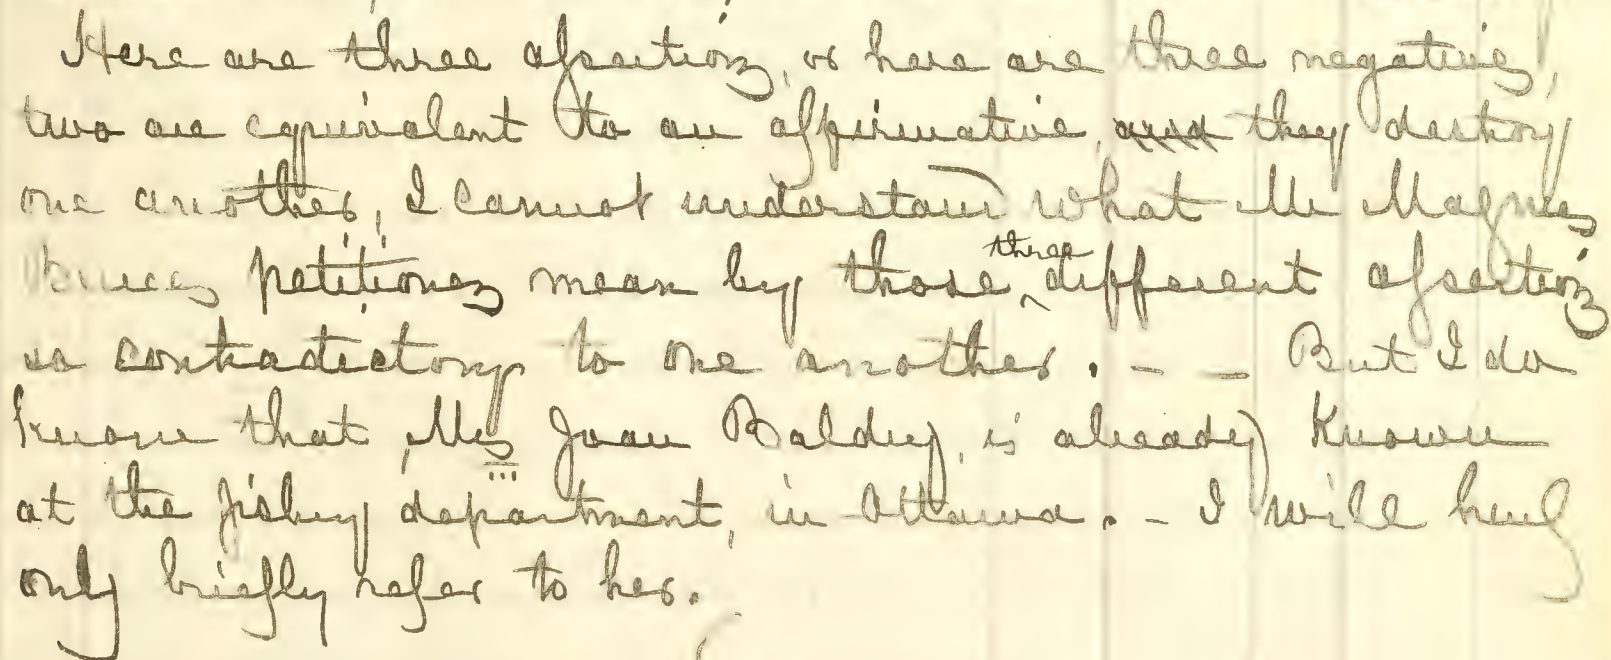 Here are three assertions, or here are three negatives,
two are equivalent to an affirmative, and they destroy
one another, I cannot understand what Mr Magnus
petitioners mean by those three different assertions
so contradictory to one another. - - But I do
know that Mrs Joan Baldry, is already Known
at the fishery department, in Ottawa. - I will
only briefly refer to her.